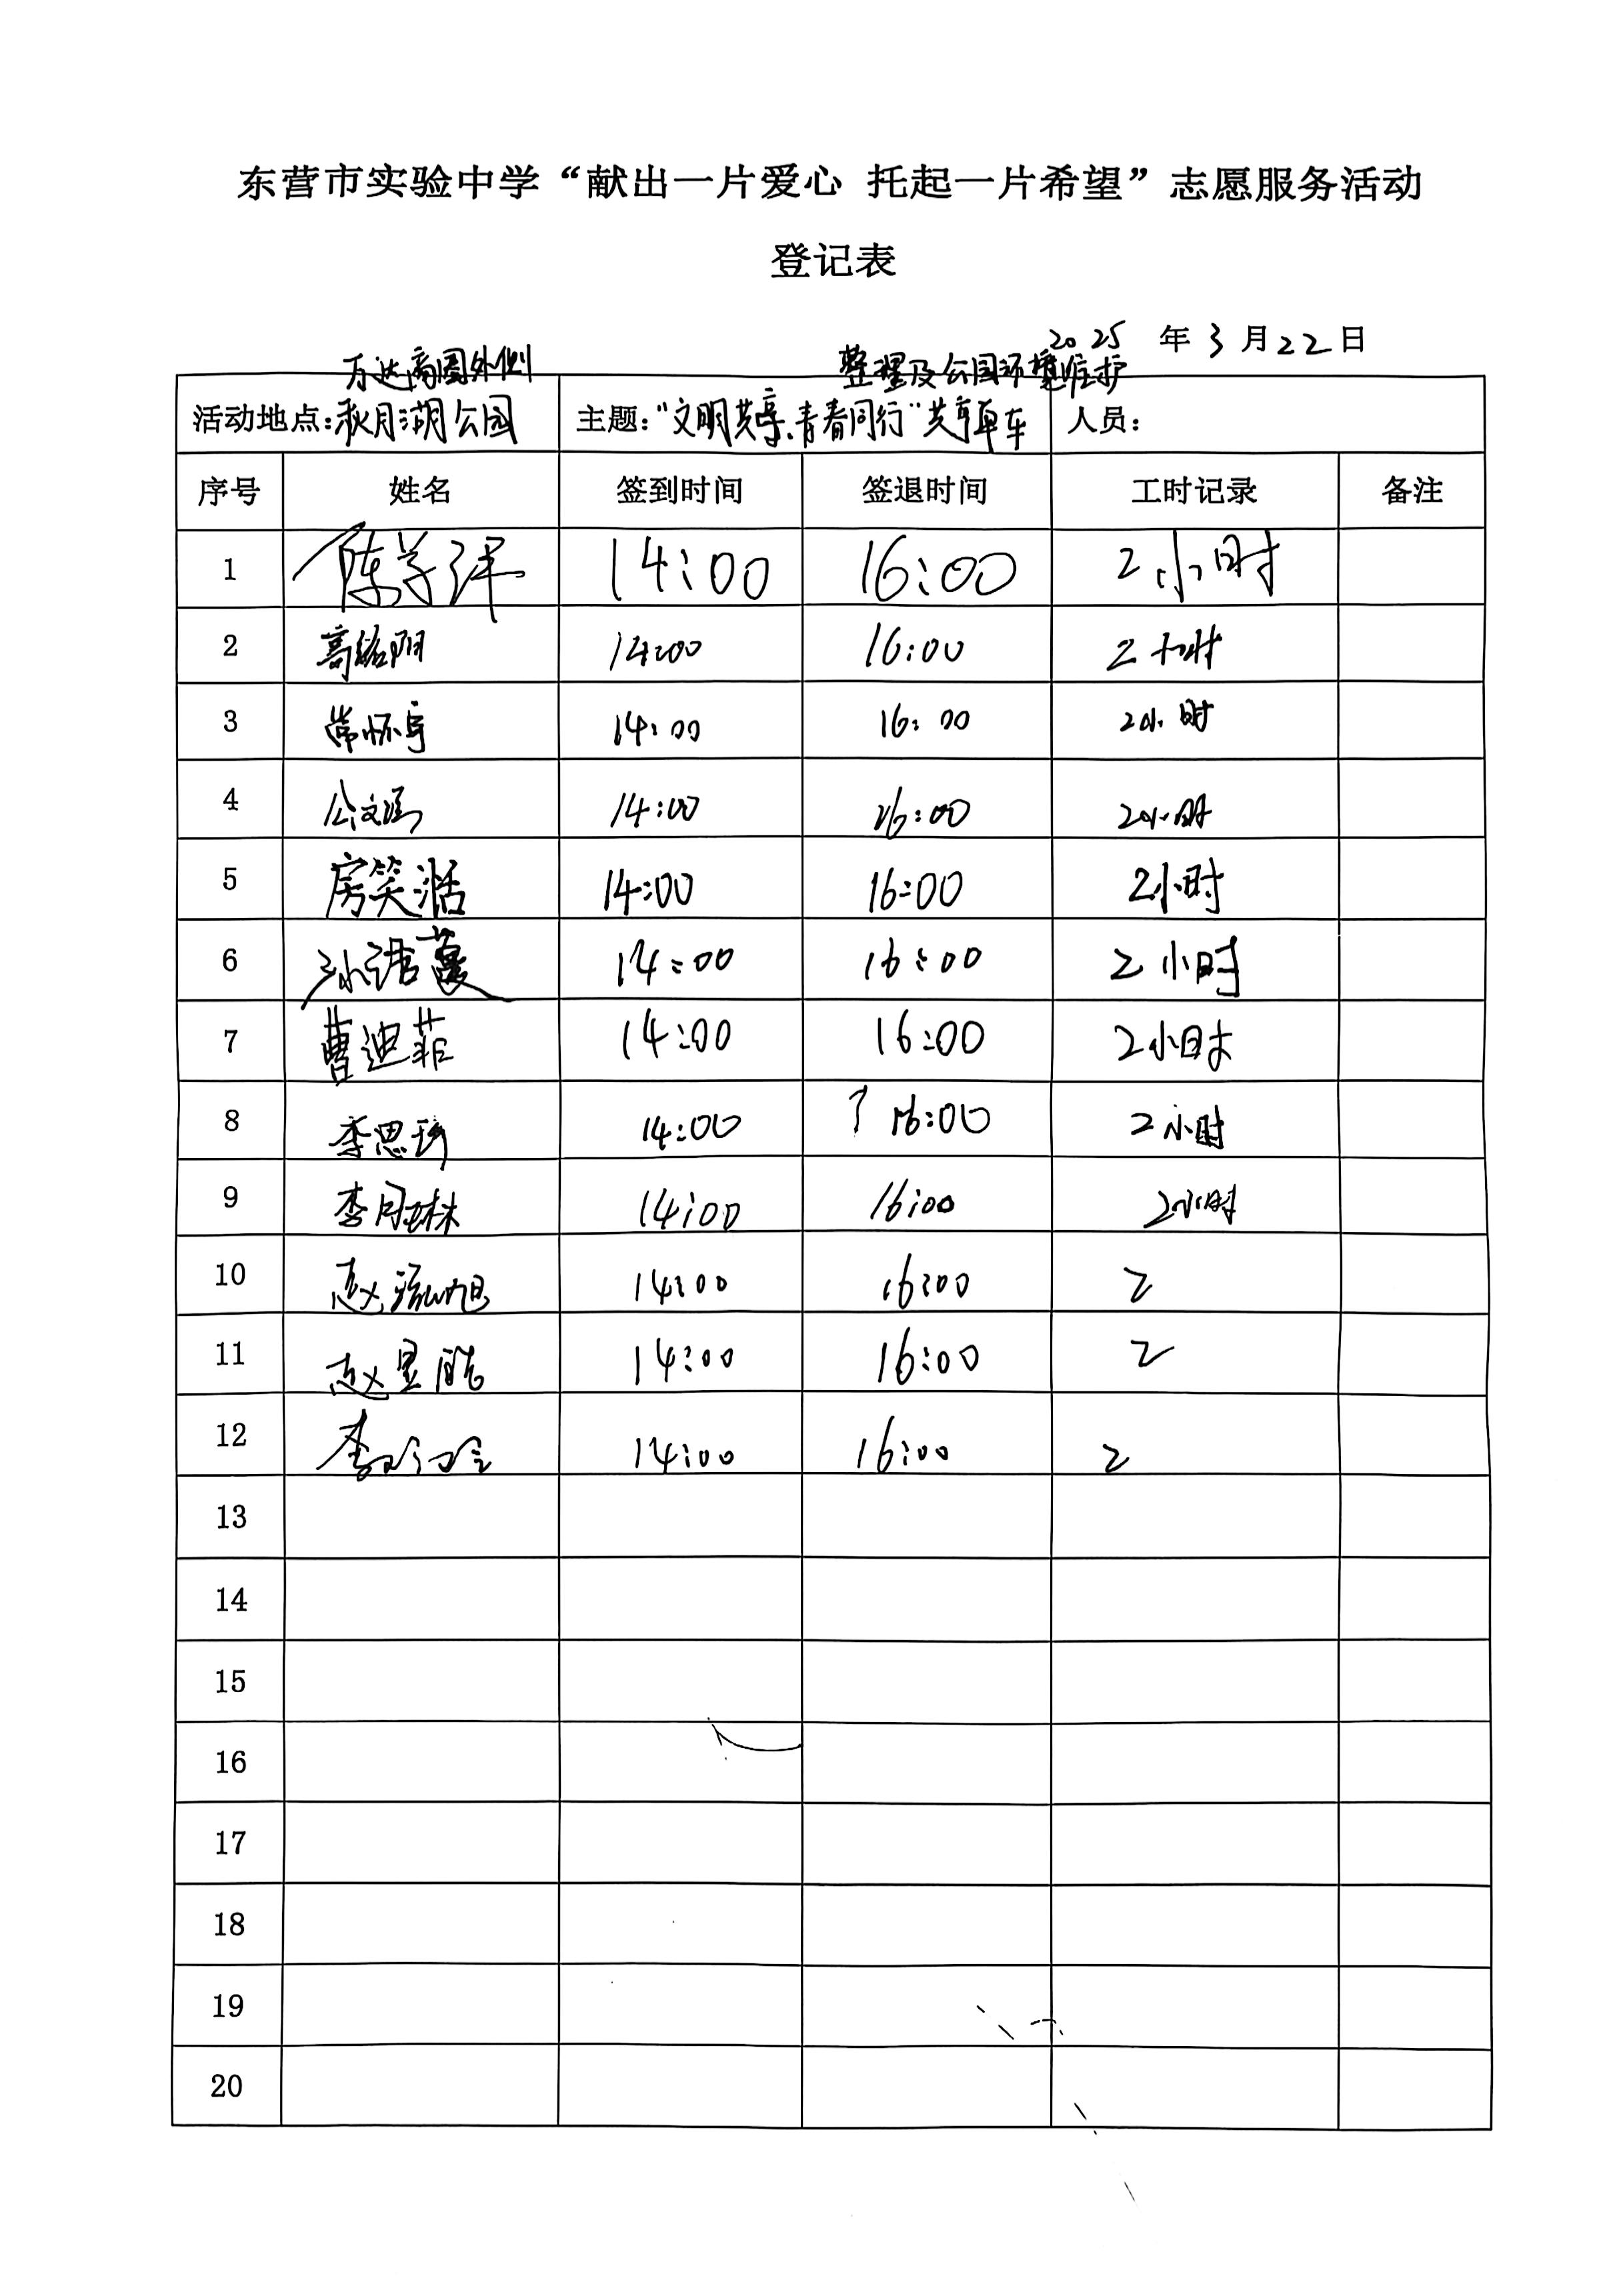 东营市实验中学“献出一片爱心 托起一片希望”志愿服务活动
登记表
2025 年 3 月 22 日
万达商圈外侧 整理及公园环境维护
活动地点：秋月湖公园 主题：“文明共享、青春同行”共享单车 人员：
序号 姓名 签到时间 签退时间 工时记录 备注
1 14:00 16:00 2小时
2 14:00 16:00 2小时
3 常怀宇 14:00 16:00 2小时
4 公文涵 14:00 16:00 2小时
5 房笑湉 14:00 16:00 2小时
6 14:00 16:00 2小时
7 曹迪菲 14:00 16:00 2小时
8 李思 14:00 16:00 2小时
9 李月琳 14:00 16:00 2小时
10 赵 旭 14:00 16:00 2
11 赵 皓 14:00 16:00 2
12 李 14:00 16:00 2
13
14
15
16
17
18
19
20